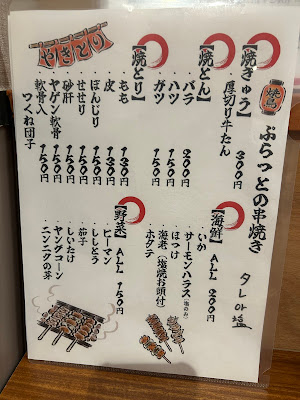 やきとり
焼鳥
ぷらっとの串焼き
タレ or 塩
【焼ぎゅう】
・厚切り牛たん 300円
【焼とん】
・バラ 200円
・ハツ 150円
・ガツ 150円
【焼とり】
・もも 130円
・皮 130円
・ぼんじり 150円
・せせり 150円
・砂肝 150円
・ヤゲン軟骨 150円
・軟骨入
つくね団子 150円
【海鮮】 ALL 200円
・いか
・サーモンハラス(塩のみ)
・ほっけ
・海老(塩焼お頭付)
・ホタテ
【野菜】 ALL 150円
・ピーマン
・ししとう
・茄子
・しいたけ
・ヤングコーン
・ニンニクの芽